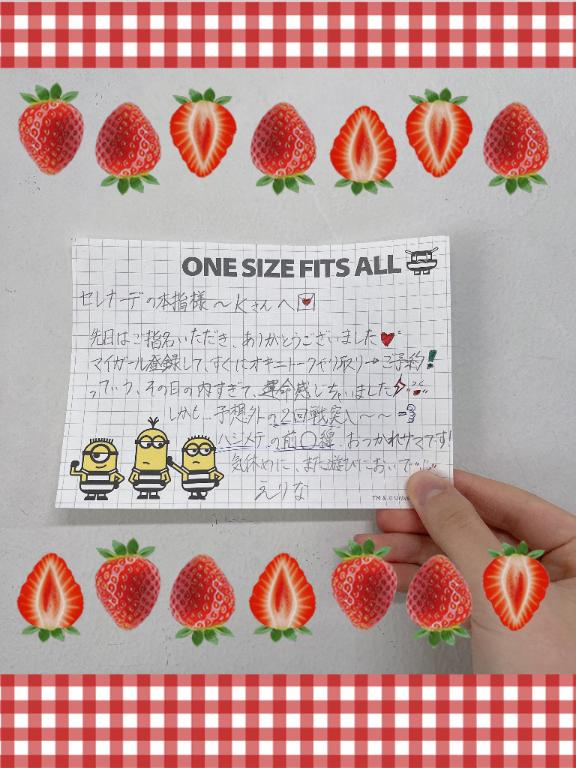 ONE SIZE FITS ALL
セレナーデの本指様〜Kさんへ
先日はご指名いただき、ありがとうございました
マイガール登録して、すぐにオキニトークやり取り→ご予約!
っていう、その日の内すぎて、運命感じちゃいました
しかし、予想外の2回戦突入〜〜
ハジメテの前〇線、おつかれサマです!
気休めに、また遊びにおいで
えりな
TM & © UNIV